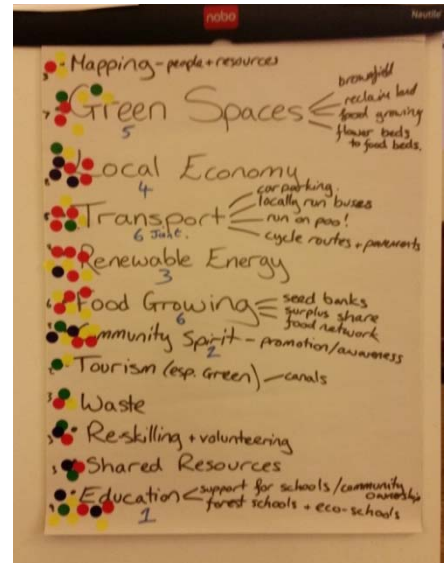 nobo
Nautile
Mapping - people + resources
Green Spaces
brownfield
reclaim land
food growing
flower beds
to food beds.
5
Local Economy
4
Transport
car parking.
locally run buses
run on poo!
cycle routes + pavements
6 Joint.
Renewable Energy
3
Food Growing
seed banks
surplus share
food network
6
Community Spirit - promotion/awareness
2
Tourism (esp. Green) - canals
Waste
Re-skilling + volunteering
Shared Resources
Education
support for schools/community
ownership
forest schools + eco-schools
1